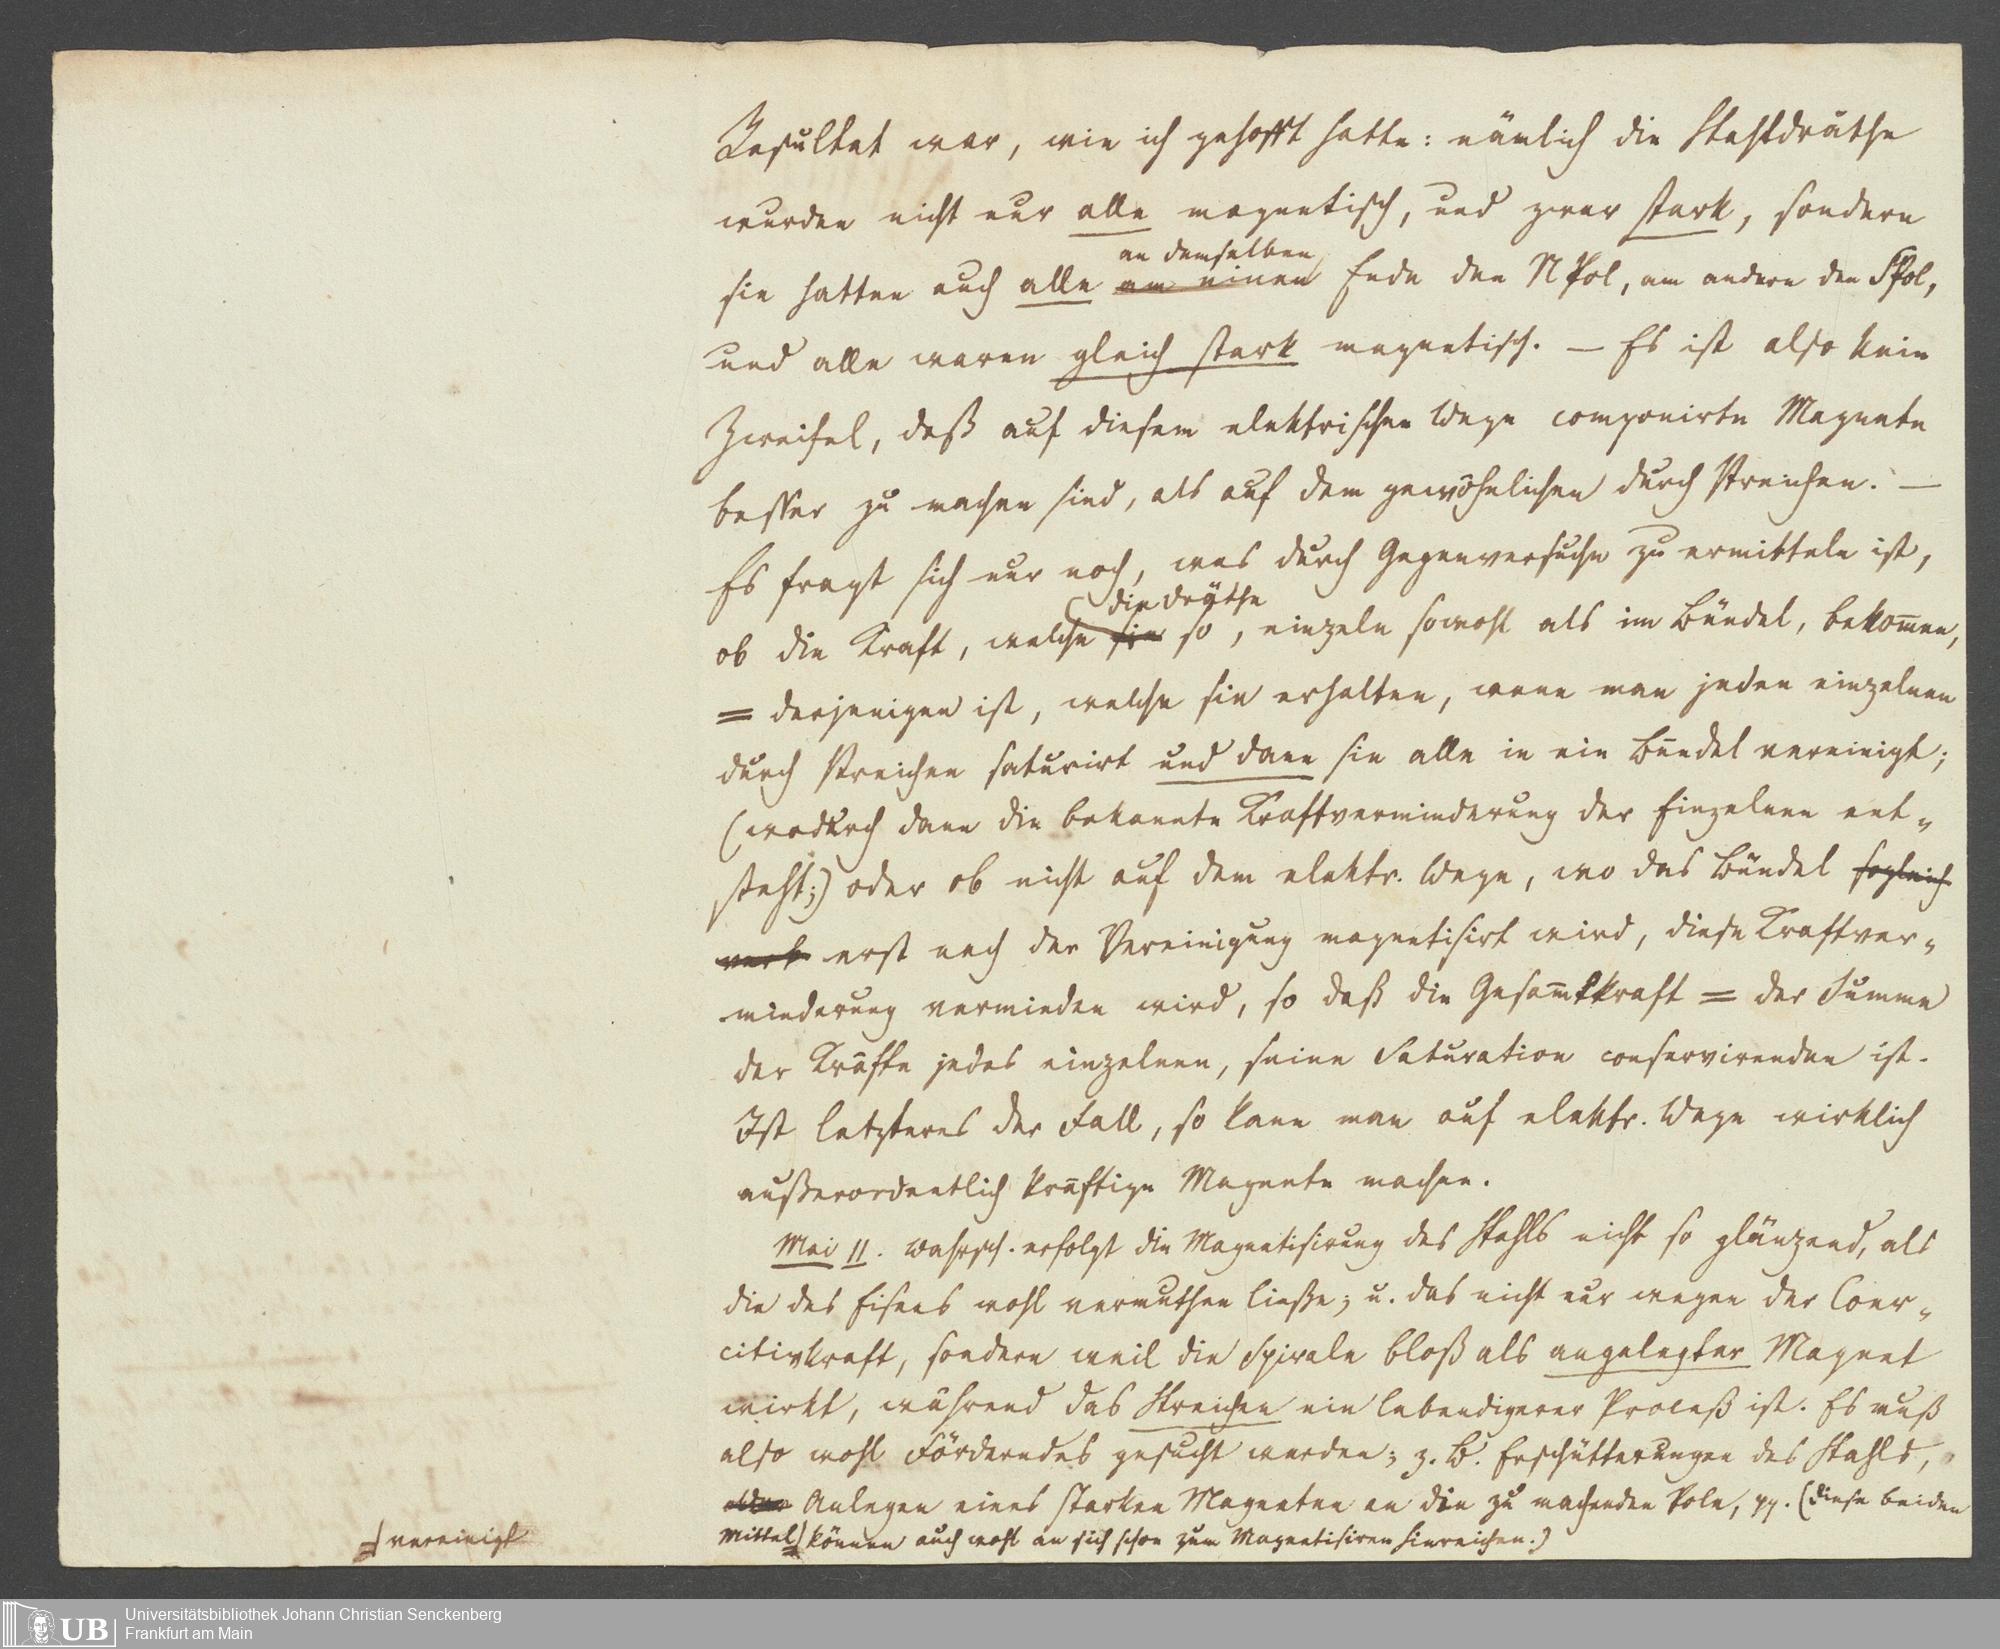 Resultat war, wie ich gehofft hatte: nämlich die Stahldräthe
wurden nicht nur alle magnetisch, und zwar stark, sondern
an demselben
sie hatten auch alle am einen Ende den N Pol, am andern den S Pol,
und alle waren gleich stark magnetisch. — Es ist also kein
Zweifel, daß auf diesem elektrischen Wege componirte Magnete
besser zu machen sind, als auf dem gewöhnlichen durch Streichen. —
Es fragt sich nur noch, was durch Gegenversuche zu ermitteln ist,
die Dräthe
ob die Kraft, welche sie so, einzeln sowohl als im Bündel, bekom̅en,
= derjenigen ist, welche sie erhalten, wenn man jeden einzelnen
durch Streichen saturirt und dann sie alle in ein Bündel vereinigt;
(wodurch dann die bekannte Kraftverminderung der Einzelnen ent-
steht;) oder ob nicht auf dem elektr. Wege, wo das Bündel sogleich
erst nach der Vereinigung magnetisirt wird, diese Kraftver-
minderung vermieden wird, so daß die Gesam̅tkraft = der Summe
der Kräfte jedes einzelnen, seine Saturation conservirenden ist.
Ist letzteres der Fall, so kann man auf elektr. Wege wirklich
außerordentlich kräftige Magnete machen.
Mai 11. Wahrsch. erfolgt die Magnetisirung des Stahls nicht so glänzend, als
die des Eisens wohl vermuthen ließe; u. das nicht nur wegen der Coer-
citivkraft, sondern weil die Spirale bloß als angelegter Magnet
wirkt, während das Streichen ein lebendigerer Proceß ist. Es muß
also wohl Förderndes gesucht werden; z. B. Erschütterungen des Stahls,
oder Anlegen eines starken Magneten an die zu machenden Pole, pp. (diese beiden
Mittel) können auch wohl an sich schon zum Magnetisiren hinreichen.)
vereinigt
UB
Universitätsbibliothek Johann Christian Senckenberg
Frankfurt am Main